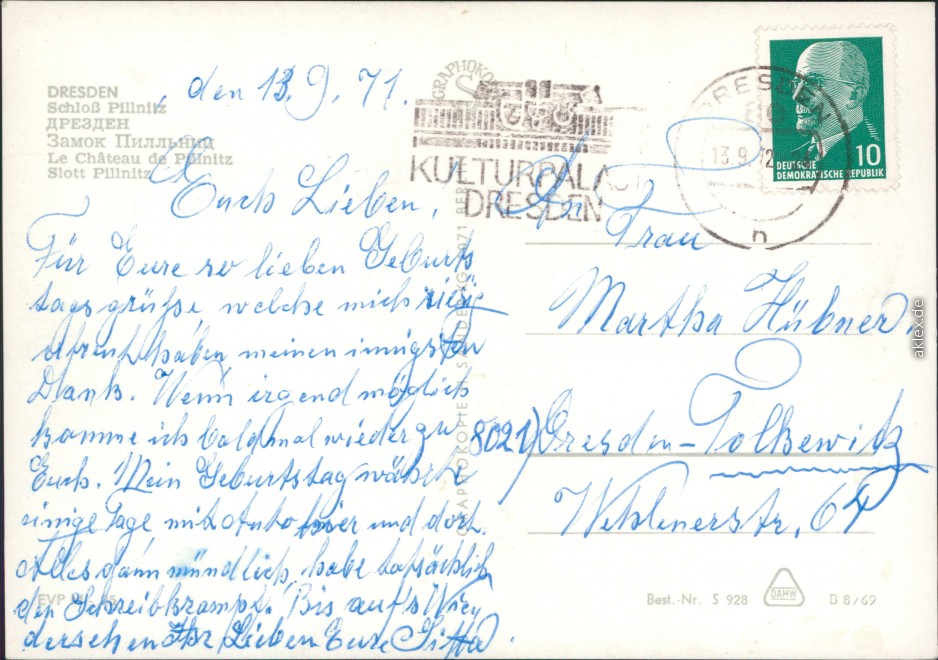 DRESDEN
Schloß Pillnitz
ДРЕЗДЕН
Замок Пилльниц
Le Château de Pillnitz
Slott Pillnitz
, den 13.9.71.
Euch Lieben,
Für Eure so lieben Geburts
tagsgrüße, welche mich riesig
erfreut haben meinen innigsten
Dank. Wenn irgend möglich
komme ich bald mal wieder zu
Euch. Mein Geburtstag währte
einige Tage mit Auto hier und dort.
Alles dann mündlich, habe tatsächlich
den Schreibkrampf. Bis aufs Wie
dersehen Ihr Lieben Eure Gitta.
EVP
KULTURPALAST
DRESDEN
DRESDEN
13.9.
n
DEUTSCHE
DEMOKRATISCHE REPUBLIK
10
An
Frau
Martha Hübner
8021) Dresden-Tolkewitz
Wehlenerstr, 64
Best.-Nr. S 928
DAMW
B 8/69
aklex.de